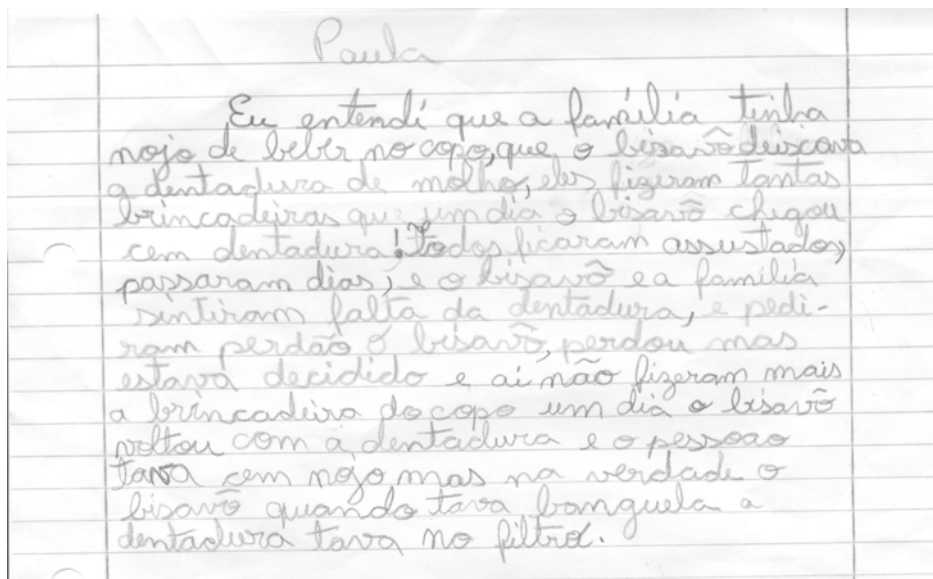 Paula
Eu entendi que a família tinha
nojo de beber no copo, que o bisavô deiscava
a dentadura de molho, eles fizeram tantas
brincadeiras que um dia o bisavô chegou
cem dentadura! Todos ficaram assustados,
passaram dias, e o bisavô e a família
sintiram falta da dentadura, e pedi-
ram perdão ó bisavô, perdou mas
estava decidido e ai não fizeram mais
a brincadeira do copo um dia o bisavô
voltou com a dentadura e o pessoao
tava cem nojo mas na verdade o
bisavô quando tava banguela a
dentadura tava no filtro.